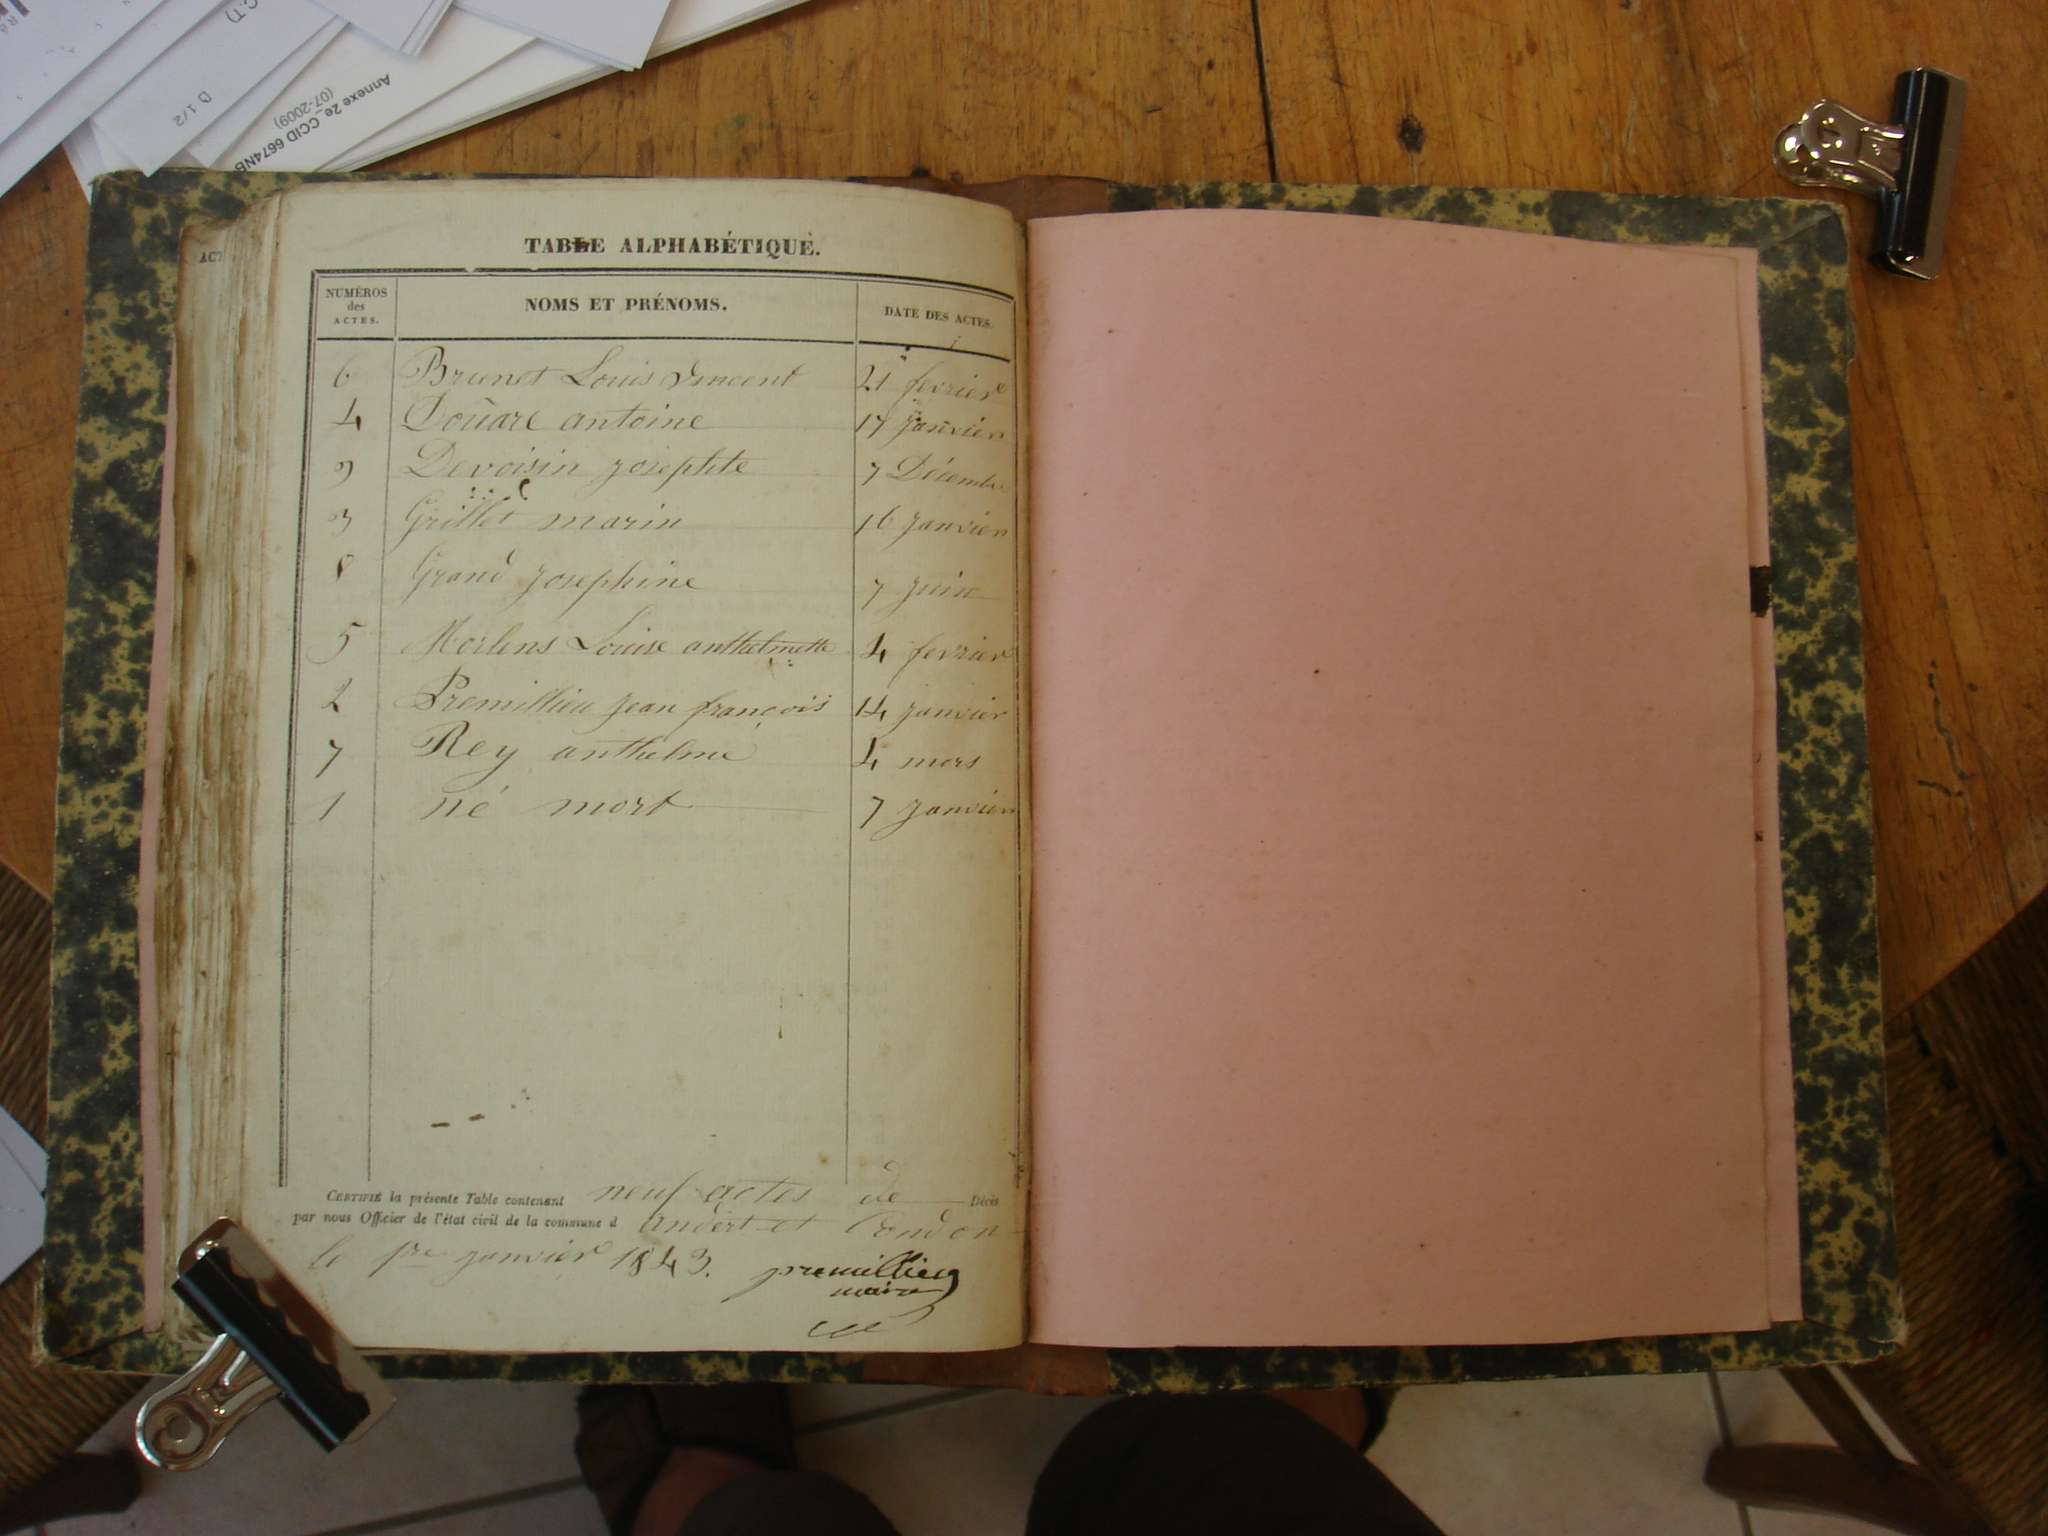 Annexe 2e CCID 6674NB
(07-2009)
D 1/2
TABLE ALPHABÉTIQUE.
NUMÉROS des ACTES. NOMS ET PRÉNOMS. DATE DES ACTES.
6 Brunet Louis Vincent 21 fevrier
4 Doüare antoine 17 janvier
9 Devoisin josephte 7 Décembre
3 Grillet marin 16 janvier
8 Grand josephine 7 juin
5 Morlens Louise anthelmette 4 fevrier
2 Premillieu jean françois 14 janvier
7 Rey anthelme 4 mars
1 né mort 7 janvier
CERTIFIÉ la présente Table contenant neuf actes de Décès
par nous Officier de l'état civil de la commune d andert-et Condon
le 1re janvier 1843. premillieu
maire